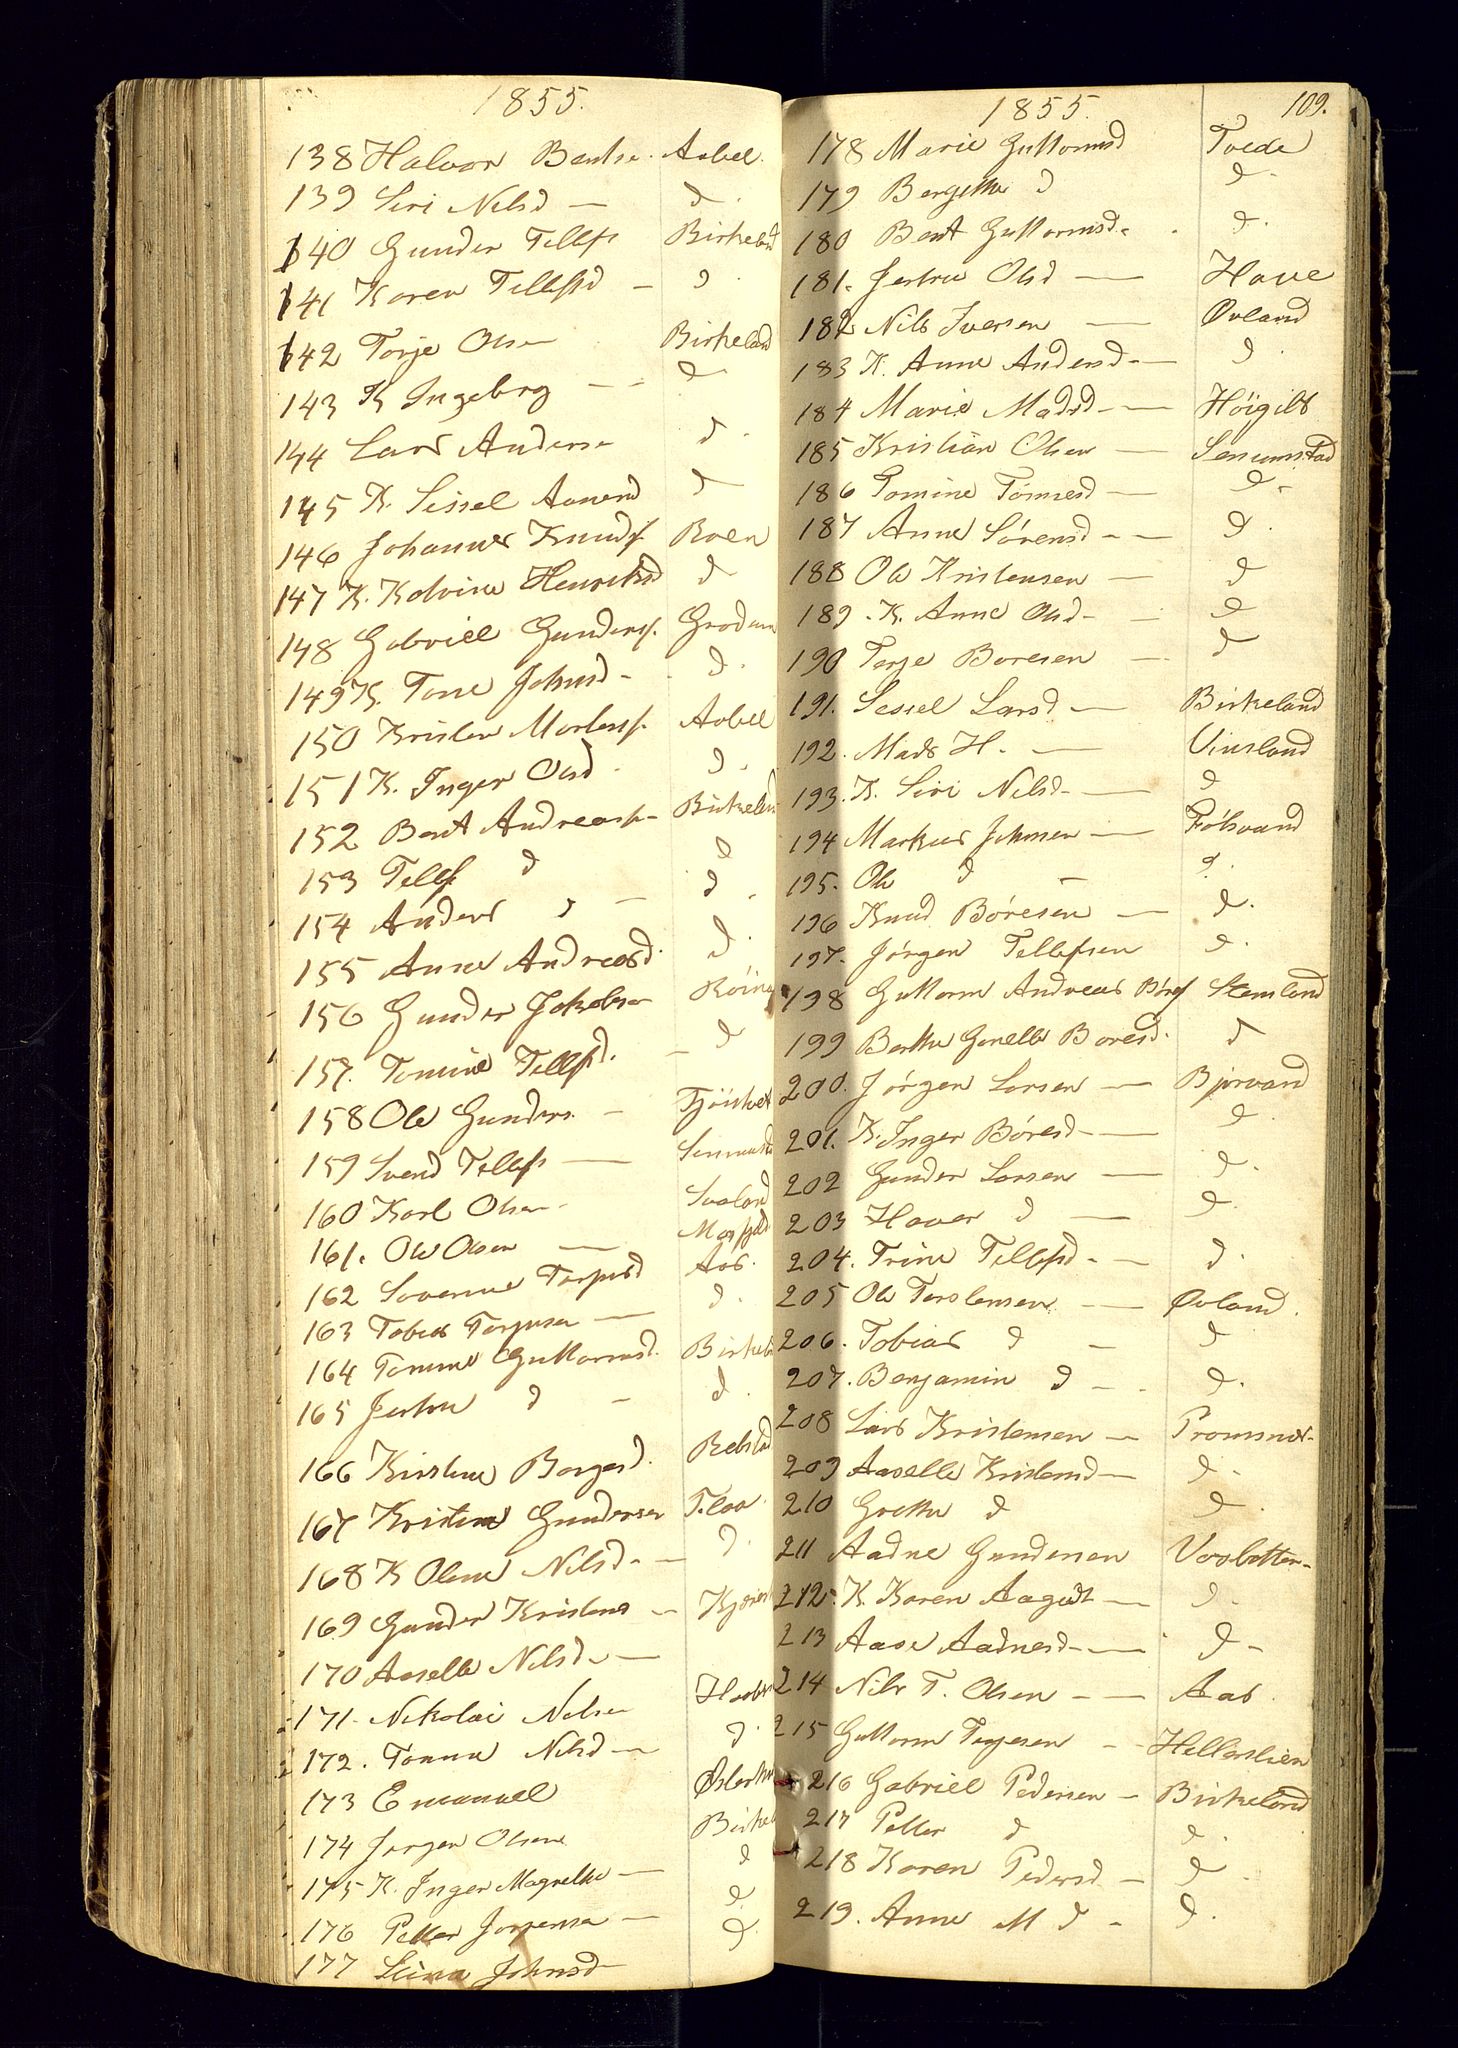 1855.
138 Halvor Bentse. Aabel.
139 Siri Nilsd — d.
140 Gunder Tellefs Birkeland
141 Karen Tellefsd — d.
142 Torje Olsen Birkeland
143 K Ingeborg — — d
144 Lars Anderse d.
145 K. Sissel Aanend d
146 Johannes Knuds. Boen
147 K. Kolvine Henriksd d
148 Gabriell Gunders. Grodum
149 K. Tone Johnsd. d.
150 Kristen Mortens. Aabel
151 K. Inger Olsd. d.
152 Bent Andreass. Birkelan
153 Tellef d d
154 Anders d — d.
155 Anne Andreasd. d.
156 Gunder Jakobsen
157. Tomine Tellefsd. — d
158 Ole Gunders. —
159 Svend Tellefs —
160 Karl Olsen Svaland
161. Ole Olsen —
162 Torjusd Aas.
163 Tobias Torjusen — d.
164 Tomine Guttormsd. Birkela
165 Jertru d — d.
166 Kirstine Borgesd. Rebstad
167 Kristen Gundersen Flaa
168 K Olene Nilsd. — d.
169 Gunder Kristens —
170 Aaselle Nilsd. —
171. Nikolai Nilsen
172. Tomine Nilsd — d.
173 Emanuel
174 Jørgen Olsen Birkel
175 K. Inger Magrethe — d
176 Petter Jørgensen — d
177 Johnsd d
1855. 109.
178 Marie Guttormsd Tvede
179 Bergethe d d.
180 Bent Guttormsd. d.
181. Jertru Olsd — Have
182 Nils Iversen — Øvland
183 K. Anne Andersd. — d.
184 Marie Madsd. — Höigilt
185 Kristian Olsen — Senumstad
186 Tomine Tönnesd — d.
187 Anne Sørensd — — d.
188 Ole Kristensen — d
189. K. Anne Olsd. — d
190 Terje Boresen — d
191. Sessel Larsd — Birkeland
192. Mads H. — Vinsland
193. K. Siri Nilsd. — d
194 Markus Johnsen — Fölsvand
195. Ole d — d.
196 Knud Børesen — d.
197. Jørgen Tellefsen d.
198 Guttorm Andreas Børes Stemland
199 Berthe Gunelle Boresd. d
200. Jørgen Larsen — Bjorvand
201. K. Inger Børesd. — d
202 Gunder Larsen — d.
203 Haver d — d.
204. Trine Tellefsd. — d.
205 Ole Terslensen — Øvland.
206. Tobias d — d
207. Benjamin d — d.
208 Lars Kristensen —
209 Aaselle Kristensd — d.
210 Grethe d d.
211 Aadne Gundersen Vasbotten.
212. K. Karen Aagodt — d.
213 Aase Aadnesd. — d —
214 Nils T. Olsen — — Aas.
215 Guttorm Terjesen — Hellerslien
216 Gabriel Pedersen — Birkeland
217 Petter d d.
218 Karen Pedersd — d
219. Anne M d — d.